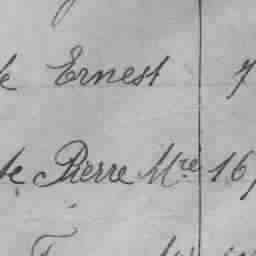 le Ernest 7
te Pierre Mre 16